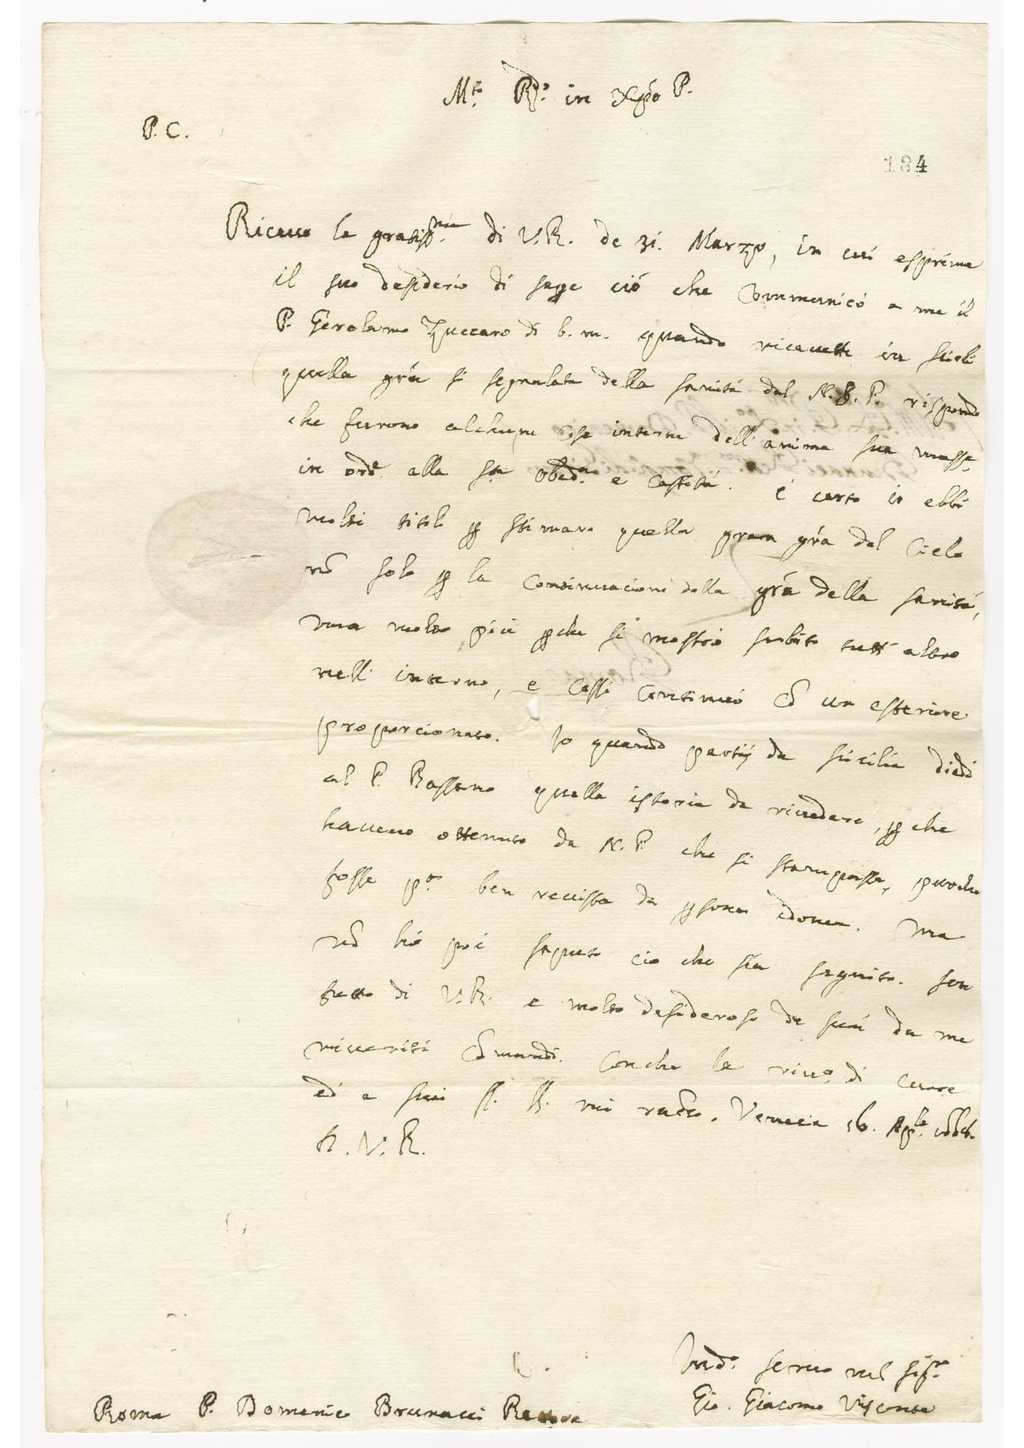 M.to R.do in Xpo P.
P. C.
184
Riceuo la gratiss.ma di V. R. de 31. Marzo, in cui esprime
il suo desiderio di sapere ciò che Communicò a me il
P. Gerolamo Zuccaro di b. m. quando riceuette in Sicil.
quella gra si segnalata della sanità dal N. B. P. rispondo
che furono alchune cose interne dell'anima sua masse.
in ord.e alla s.ta Obed.a e Castità. è certo io ebbi
molti titoli p stimare quella gran gra del Cielo
nō solo p la Continuacione della gra della sanità,
ma molto più pche si mostrò subito tutt'altro
nell'interno, e cossì Continuò cō un esteriore
proporcionato. Io quando partij da Sicilia diedi
al P. Bassano quella istoria da riuedere, p che
haueuo ottenuto da N. P. che si stampasse, purche
fosse p.a ben reuista da psona idonea. Ma
nō hò poi saputo ciò che sia seguito. son
tutto di V. R. e molto desideroso de suoi da me
riueriti Comandi. Con che la riu.o di cuore
ed a suoi SS. SS. mi racc.o. Venecia 16. Ap.le
D. V. R.
seruo nel Sig.re
Gio. Giacomo Visconte
Roma P. Domenico Brunacci